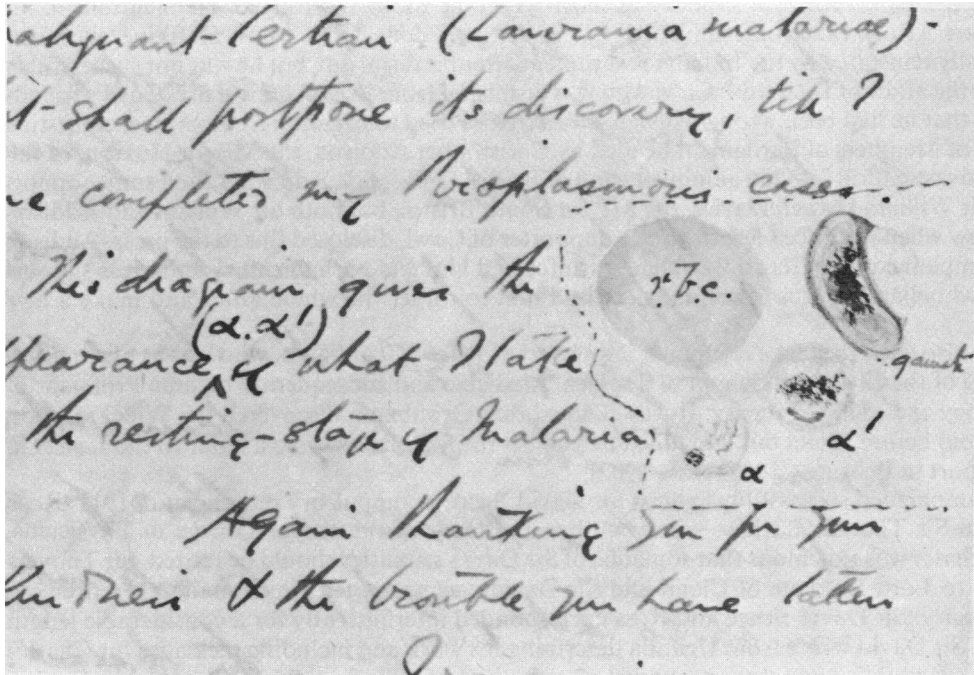 malignant-tertian (Laverania malariae).
it shall postpone it's discovery, till I
've completed my Piroplasmosis cases.
This diagram gives the
r.b.c.
(α.α')
gamete
appearance of what I take
the resting-stage of Malaria
α'
α
Again thanking you for your
Kindness & the trouble you have taken